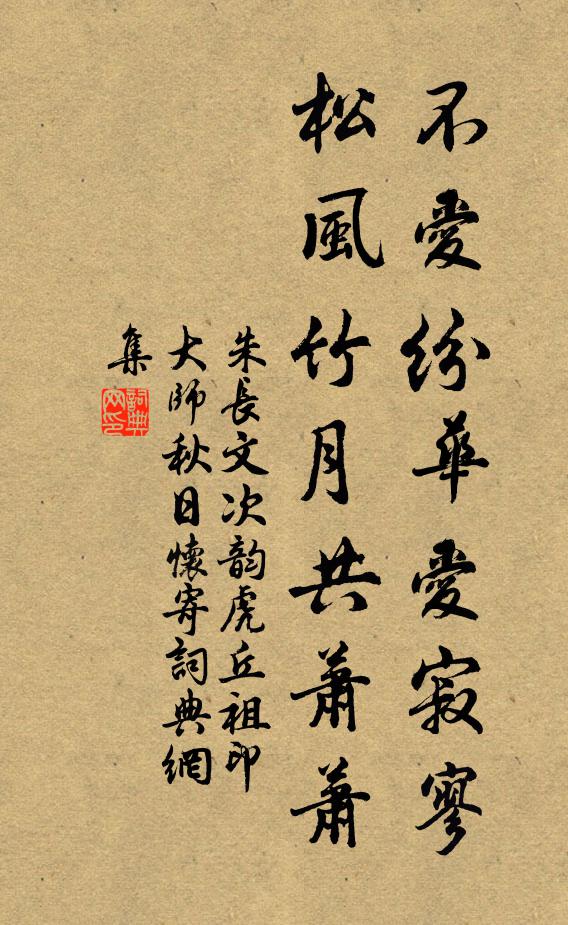 不愛紛華愛寂寥
松風竹月共蕭蕭
朱長文次韵虎丘祖印
大師秋日懷寄詞典網
集
詞典
网印